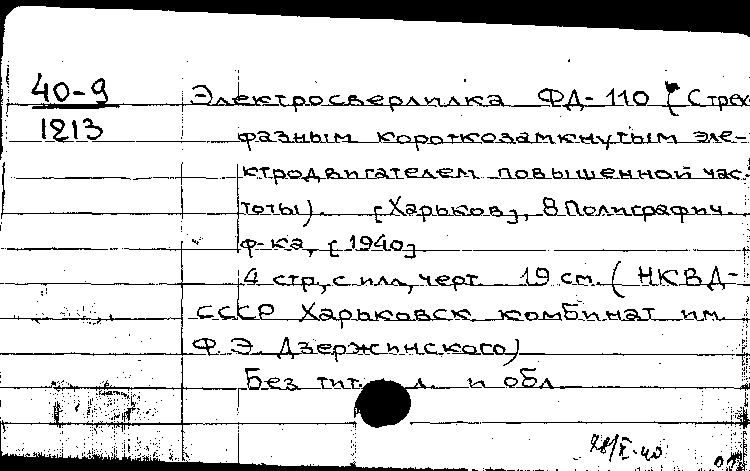 40-9
1213
Электросверлилка ФД-110 (С трех
фазным короткозамкнутым эле-
ктродвигателем повышенной час-
тоты). [Харьков], 8 Полиграфич.
ф-ка, [1940]
4 стр, с илл, черт. 19 см. (НКВД-
СССР Харьковск комбинат им.
Ф. Э. Дзержинского)
Без тит. л. и обл.